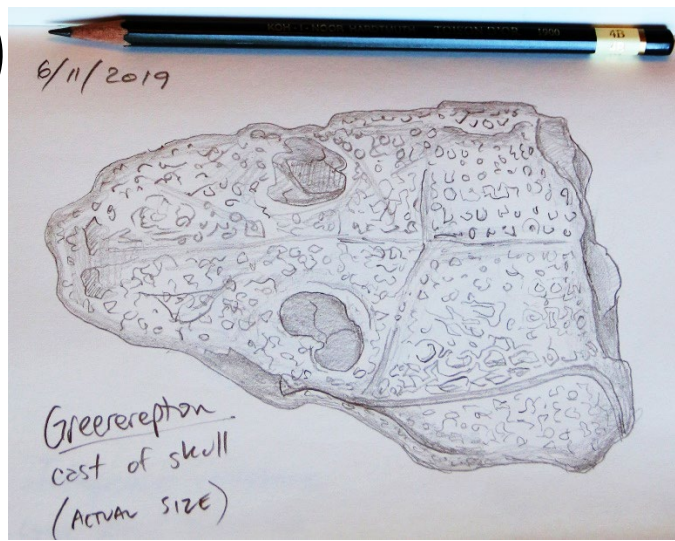 KOH-I-NOOR HARDTMUTH TOISON D'OR 1900 4B
6/11/2019
Greererepton
cast of skull
(ACTUAL SIZE)